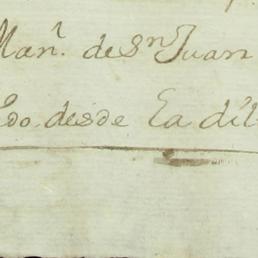 Man.l de Sn Juan
do. desde la dil